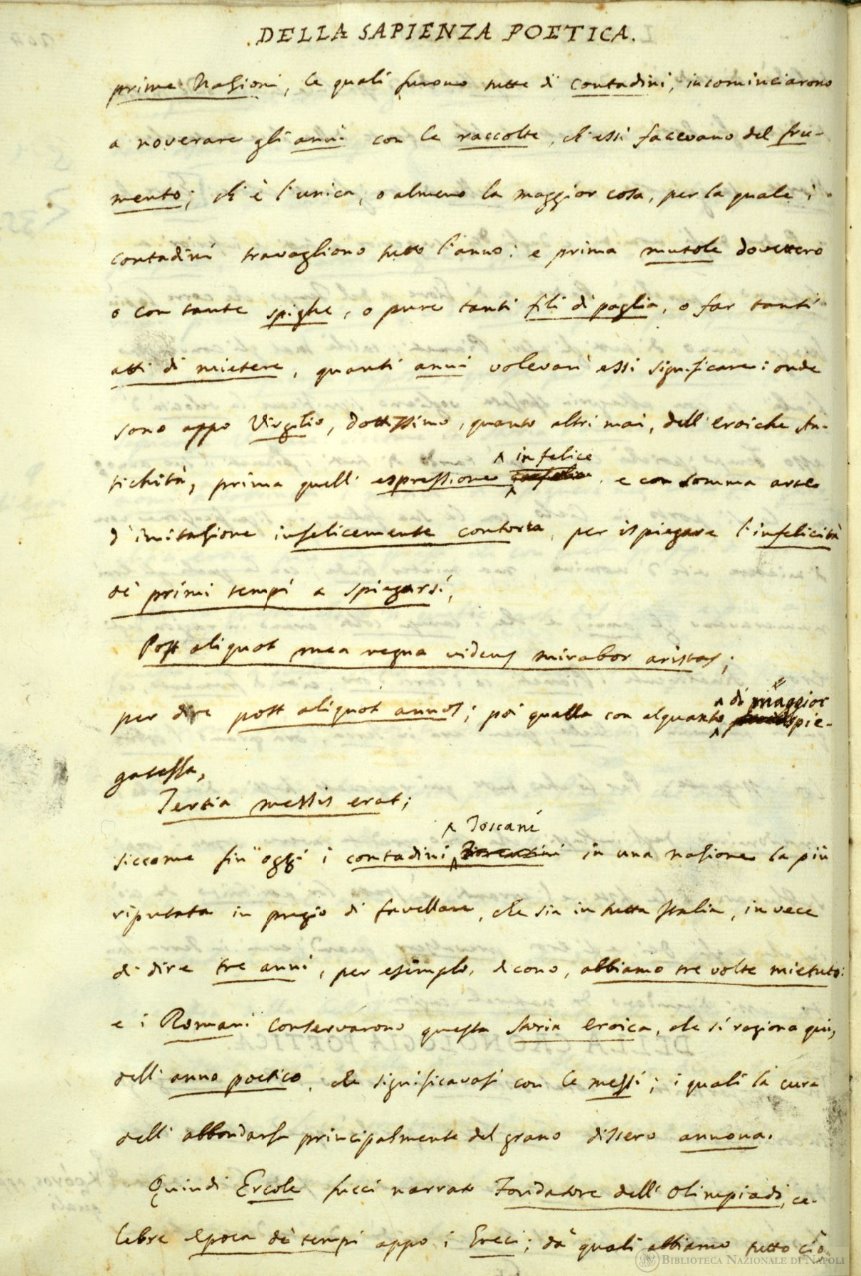 DELLA SAPIENZA POETICA.
prime Nazioni, le quali furono tutte di contadini, incominciarono
a noverare gli anni con le raccolte, ch'essi facevano del fru-
mento; ch'è l'unica, o almeno la maggior cosa, per la quale i
contadini travagliono tutto l'anno: e prima mutole dovettero
o con tante spighe, o pure tanti fili di paglia, o far tanti
atti di mietere, quanti anni volevan essi significare: onde
sono appo Virgilio, dottissimo, quanto altri mai, dell'eroiche An-
tichità, prima quell'espressione infelice, e con somma arte
d'imitazione infelicemente contorta, per ispiegare l'infelicità
de' primi tempi a spiegarsi,
Post aliquot mea regna videns mirabor aristas;
per dire post aliquot annos; poi quella con alquanto di maggior spie-
gatezza,
Tertia messis erat;
siccome fin'oggi i contadini Toscani in una nazione la più
riputata in pregio di favellare, che sia in tutta Italia, in vece
di dire tre anni, per esemplo, dicono, abbiamo tre volte mietuto:
e i Romani conservarono questa storia eroica, che si ragiona qui,
dell'anno poetico, che significavasi con le messi; i quali la cura
dell'abbondanza principalmente del grano dissero annona.
Quindi Ercole fucci narrato Fondatore dell'Olimpiadi, ce-
lebre epoca de' tempi appo i Greci; da' quali abbiamo tutto ciò
BIBLIOTECA NAZIONALE DI NAPOLI